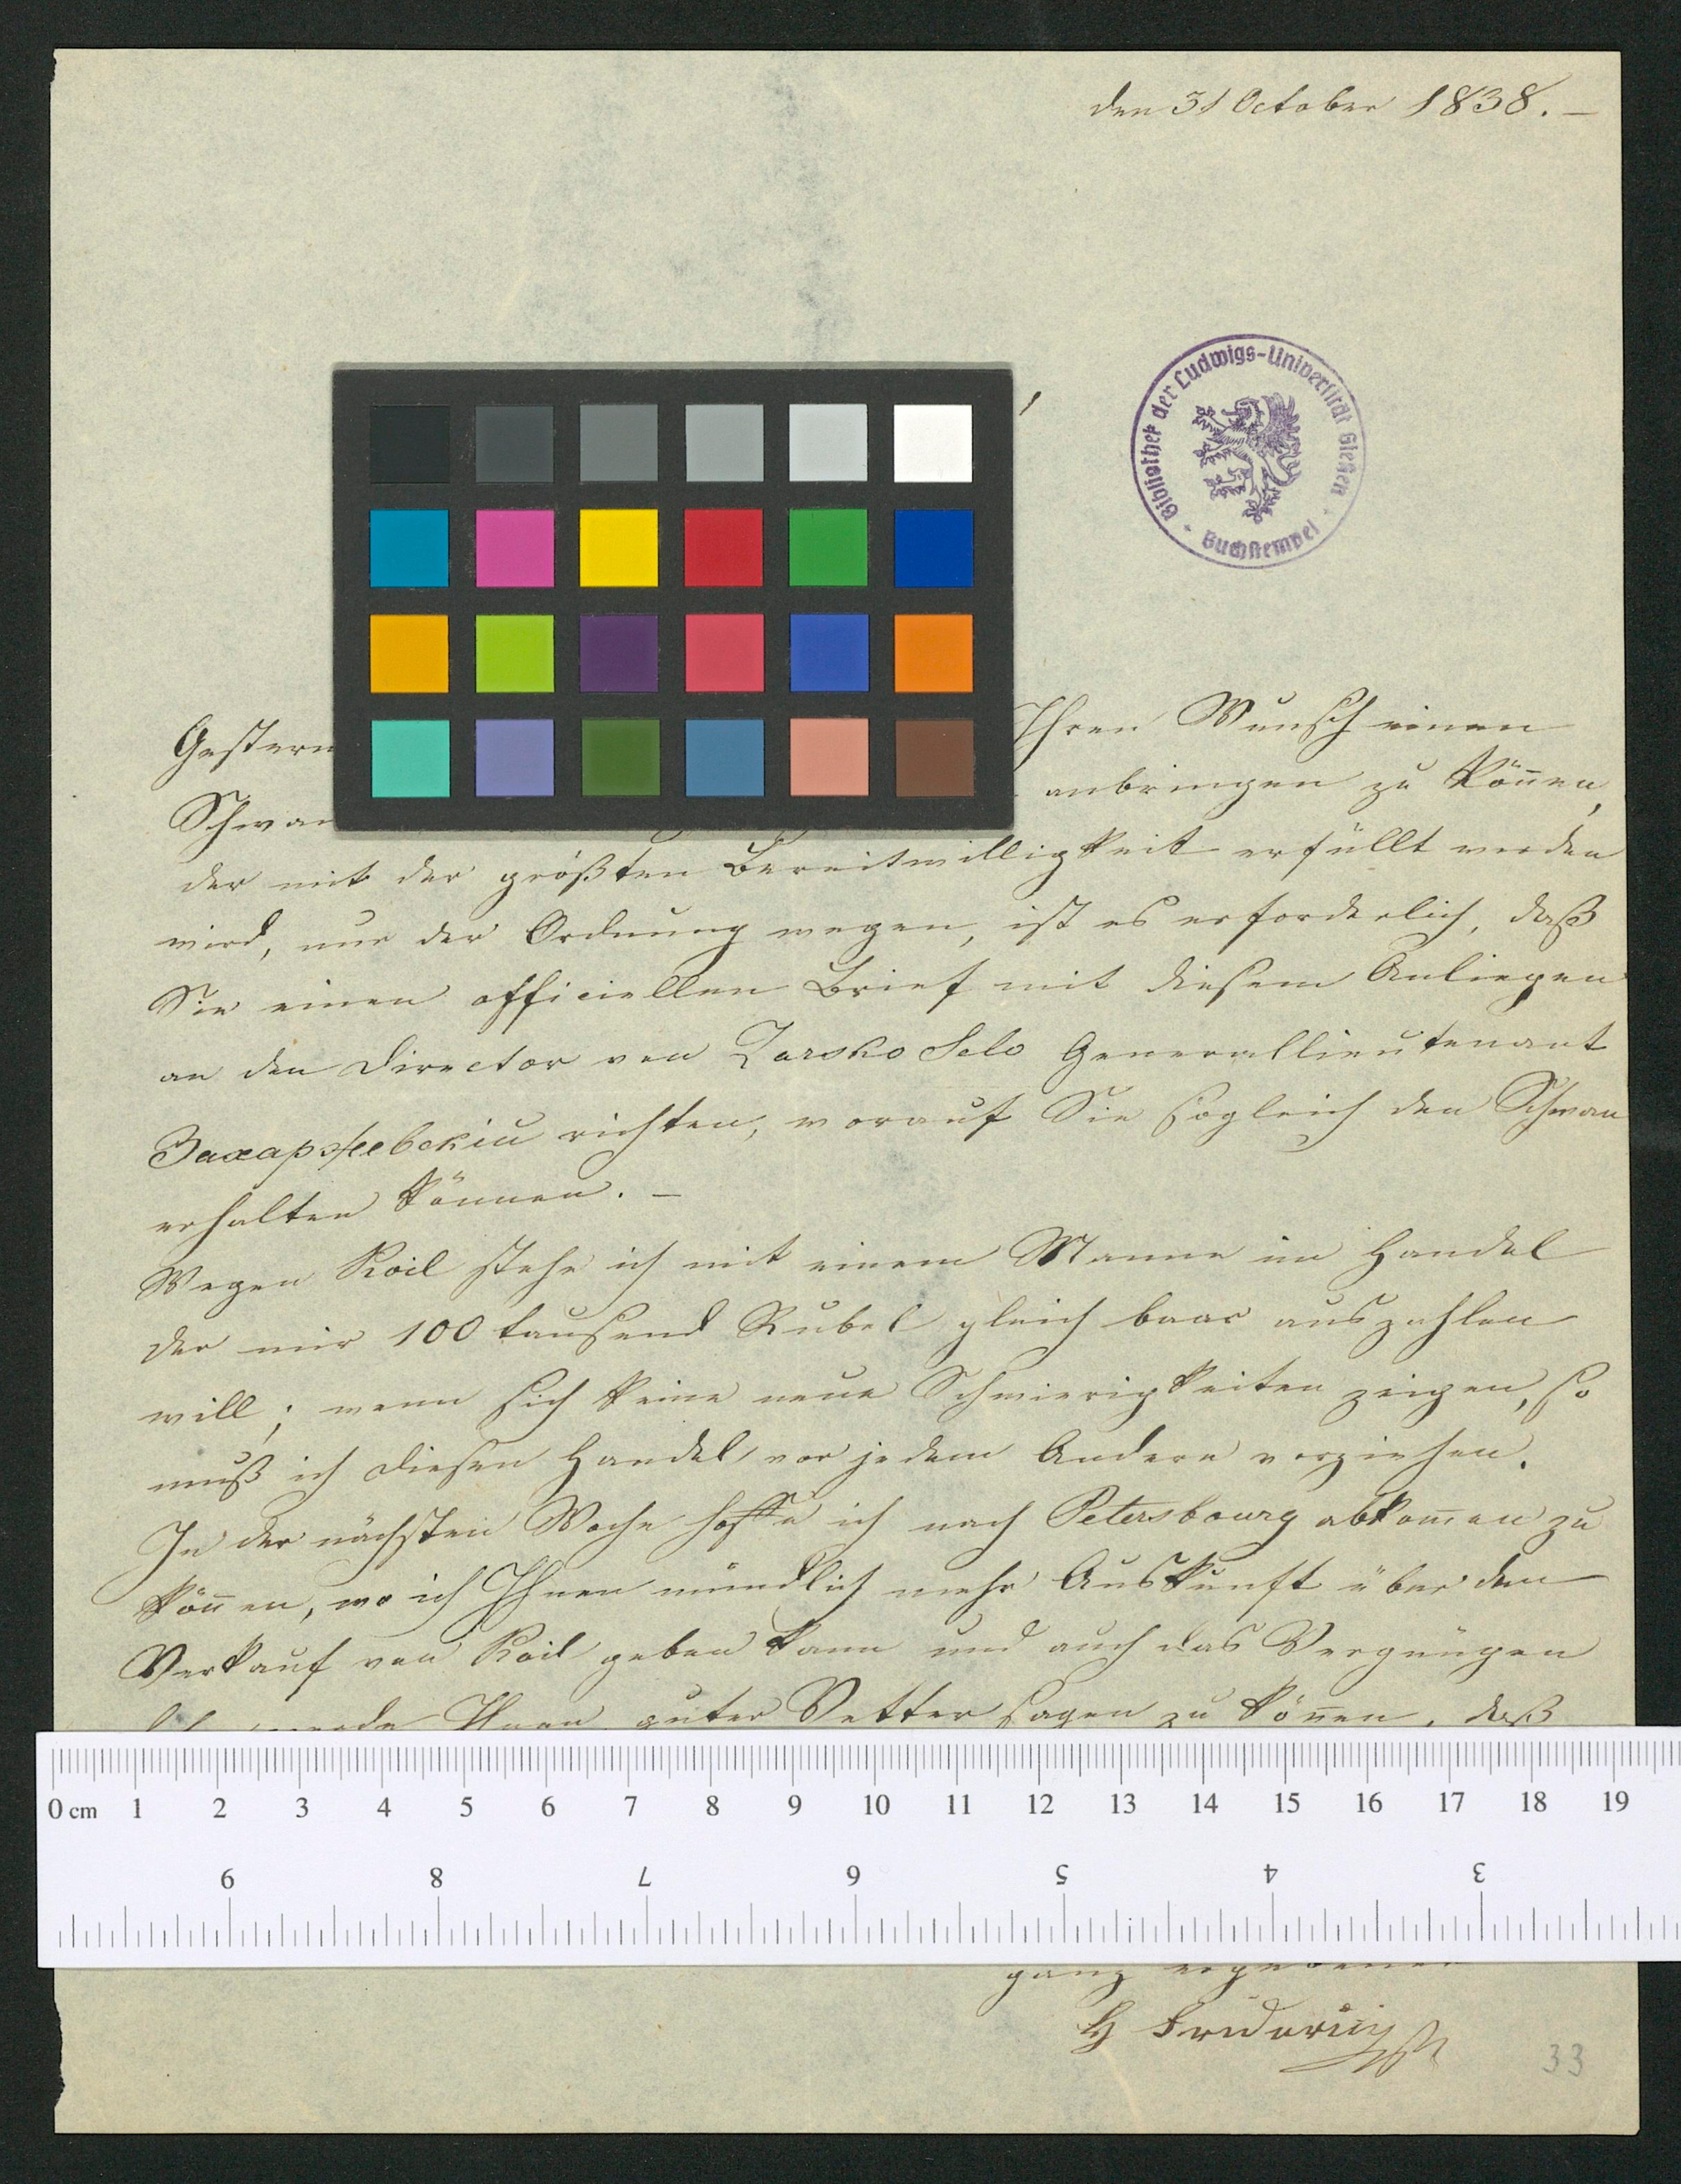 den 31 October 1838. –
Bibliothek der Ludwigs-Universität Gießen
Buchstempel
Gestern Ihren Wunsch einen
Schwan anbringen zu kön̄en,
der mit der größten Bereitwilligkeit erfüllt werden
wird, nur der Ordnung wegen, ist es erforderlich, daß
Sie einen officiellen Brief mit diesem Anliegen
an den Director von Zarsko Selo Generallieutenant
Захаржевскiи richten, worauf Sie sogleich den Schwan
erhalten können. –
Wegen Koil stehe ich mit einem Manne im Handel
der mir 100 tausend Rubel gleich baar auszahlen
will; wenn sich keine neue Schwierigkeiten zeigen, so
muß ich diesen Handel vor jedem Andern vorziehen.
In der nächsten Woche hoffe ich nach Petersbourg abkom̄en zu
kön̄en, wo ich Ihnen mündlich mehr Auskunft über den
Verkauf von Koil geben kann und auch das Vergnügen
guter Vetter sagen zu kön̄en, daß
0 cm 1 2 3 4 5 6 7 8 9 10 11 12 13 14 15 16 17 18 19
9 8 7 6 5 4 3
ganz ergebener
33